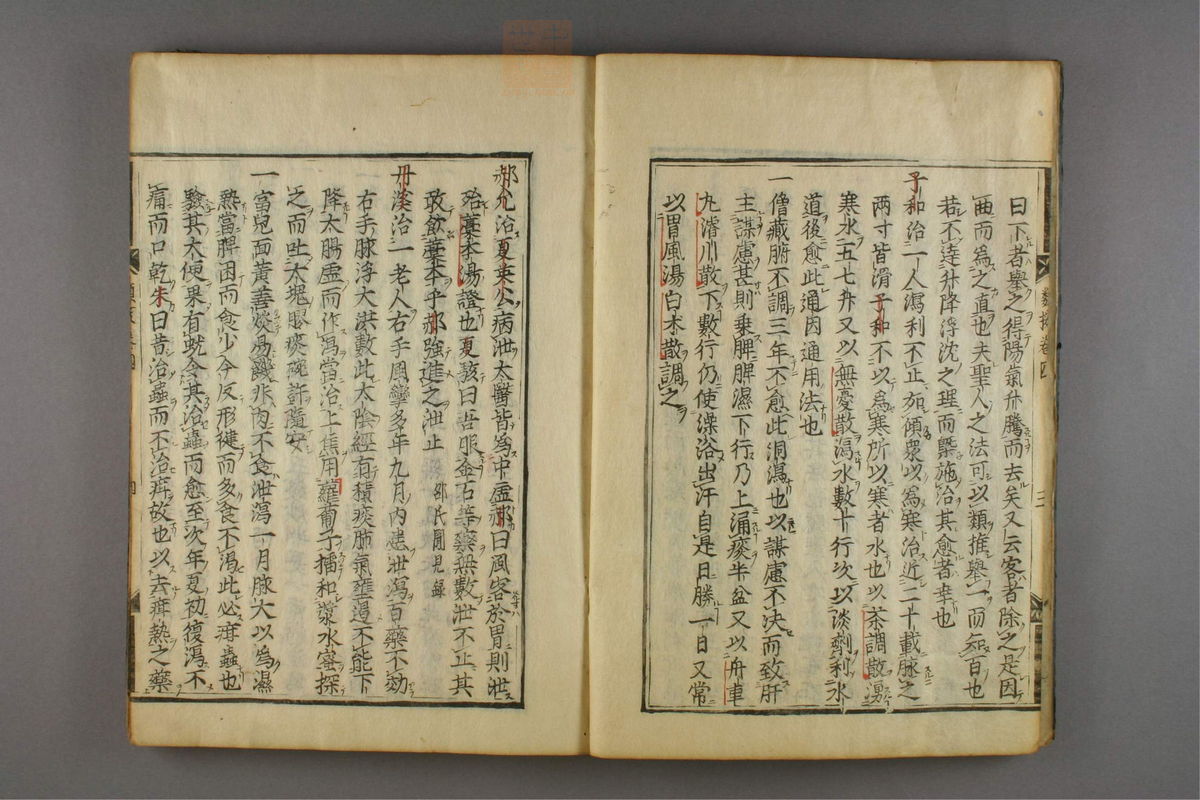 曰下者舉之得陽氣升騰而去矣又云客者除之是因
曲而為之直也夫聖人之法可以類推舉一而知百也
若不達升降浮沈之理而槩施治其愈者幸也
子和治一人瀉利不止如傾衆以為寒治近二十載脉之
兩寸皆滑子和不以為寒所以寒者水也以茶調散湧
寒水五七升又以無憂散瀉水數十行次以淡劑利水
道後愈此通因通用法也
一僧藏腑不調三年不愈此洞瀉也以謀慮不决而致肝
主謀慮甚則乗脾脾濕下行乃上涌痰半盆又以舟車
丸濬川散下數行仍使澡浴出汗自是日勝一日又常
以胃風湯白朮散調之
郝允治夏英公病泄太醫皆為中虛郝曰風客於胃則泄
殆藁本湯證也夏駭曰吾服金石等藥無數泄不止其
敢飲藁本乎郝強進之泄止 邵氏聞見録
丹溪治一老人右手風攣多年九月内患泄瀉百藥不効
右手脉浮大洪數此太陰經有積痰肺氣壅遏不能下
降大腸虛而作瀉當治上焦用蘿蔔子擂和漿水蜜探
之而吐大塊膠痰碗許隨安
一富兒面黄善啖易饑非肉不食泄瀉一月脉大以為濕
熱當脾困而愈少今反形健而多食不渴此必疳蟲也
驗其大便果有蚘令其治蟲而愈至次年夏初復瀉不
痛而口乾朱曰昔治蟲而不治疳故也以去疳熱之藥